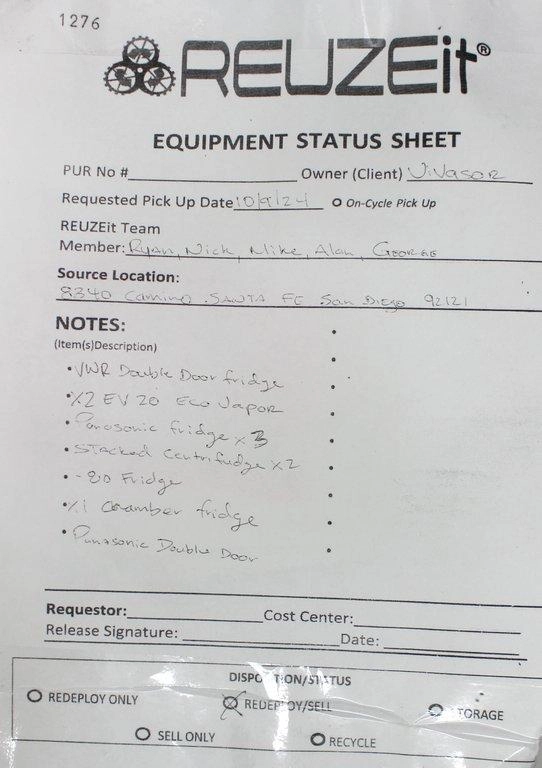 1276
REUZEit®
EQUIPMENT STATUS SHEET
PUR No # Owner (Client) Vivasor
Requested Pick Up Date 10/9/24 O On-Cycle Pick Up
REUZEit Team
Member: Ryan, Nick, Mike, Alan, George
Source Location:
9340 Camino SANTA FE San Diego 92121
NOTES:
(Item(s)Description)
• VWR Double Door fridge
• X2 EV 20 Eco Vapor
• Panasonic fridge x 3
• STACKED Centrifudge x2
• -80 Fridge
• X1 Chamber fridge
• Panasonic Double Door
Requestor: Cost Center:
Release Signature: Date:
DISPOSITION/STATUS
O REDEPLOY ONLY O REDEPLOY/SELL O STORAGE
O SELL ONLY O RECYCLE